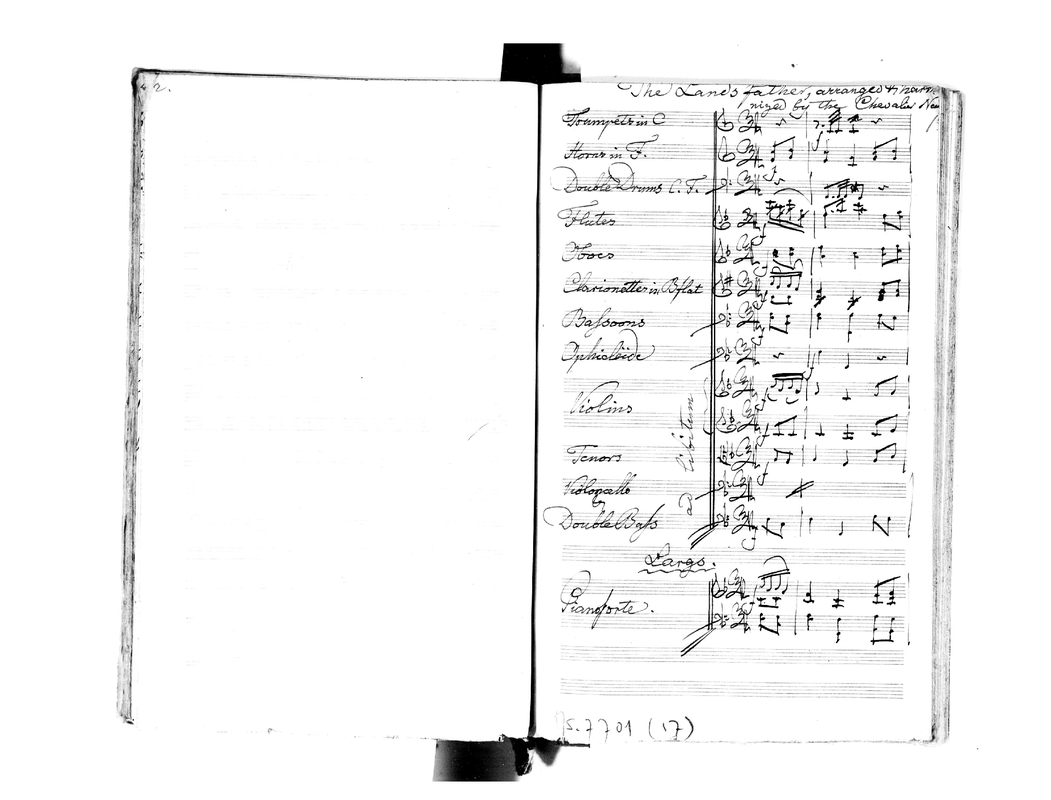 2.
The Lands father, arranged & harmo
nized by the Chevalier Neu
Trumpets in C
Horns in F.
Double Drums C. F.
Flutes
Oboes
Clarionettes in B flat
Baſsoons
Ophicleïde
Violins
ad libitum
Tenors
Violoncello
Double Baſs
Largo.
Pianoforte.
7701 (17)